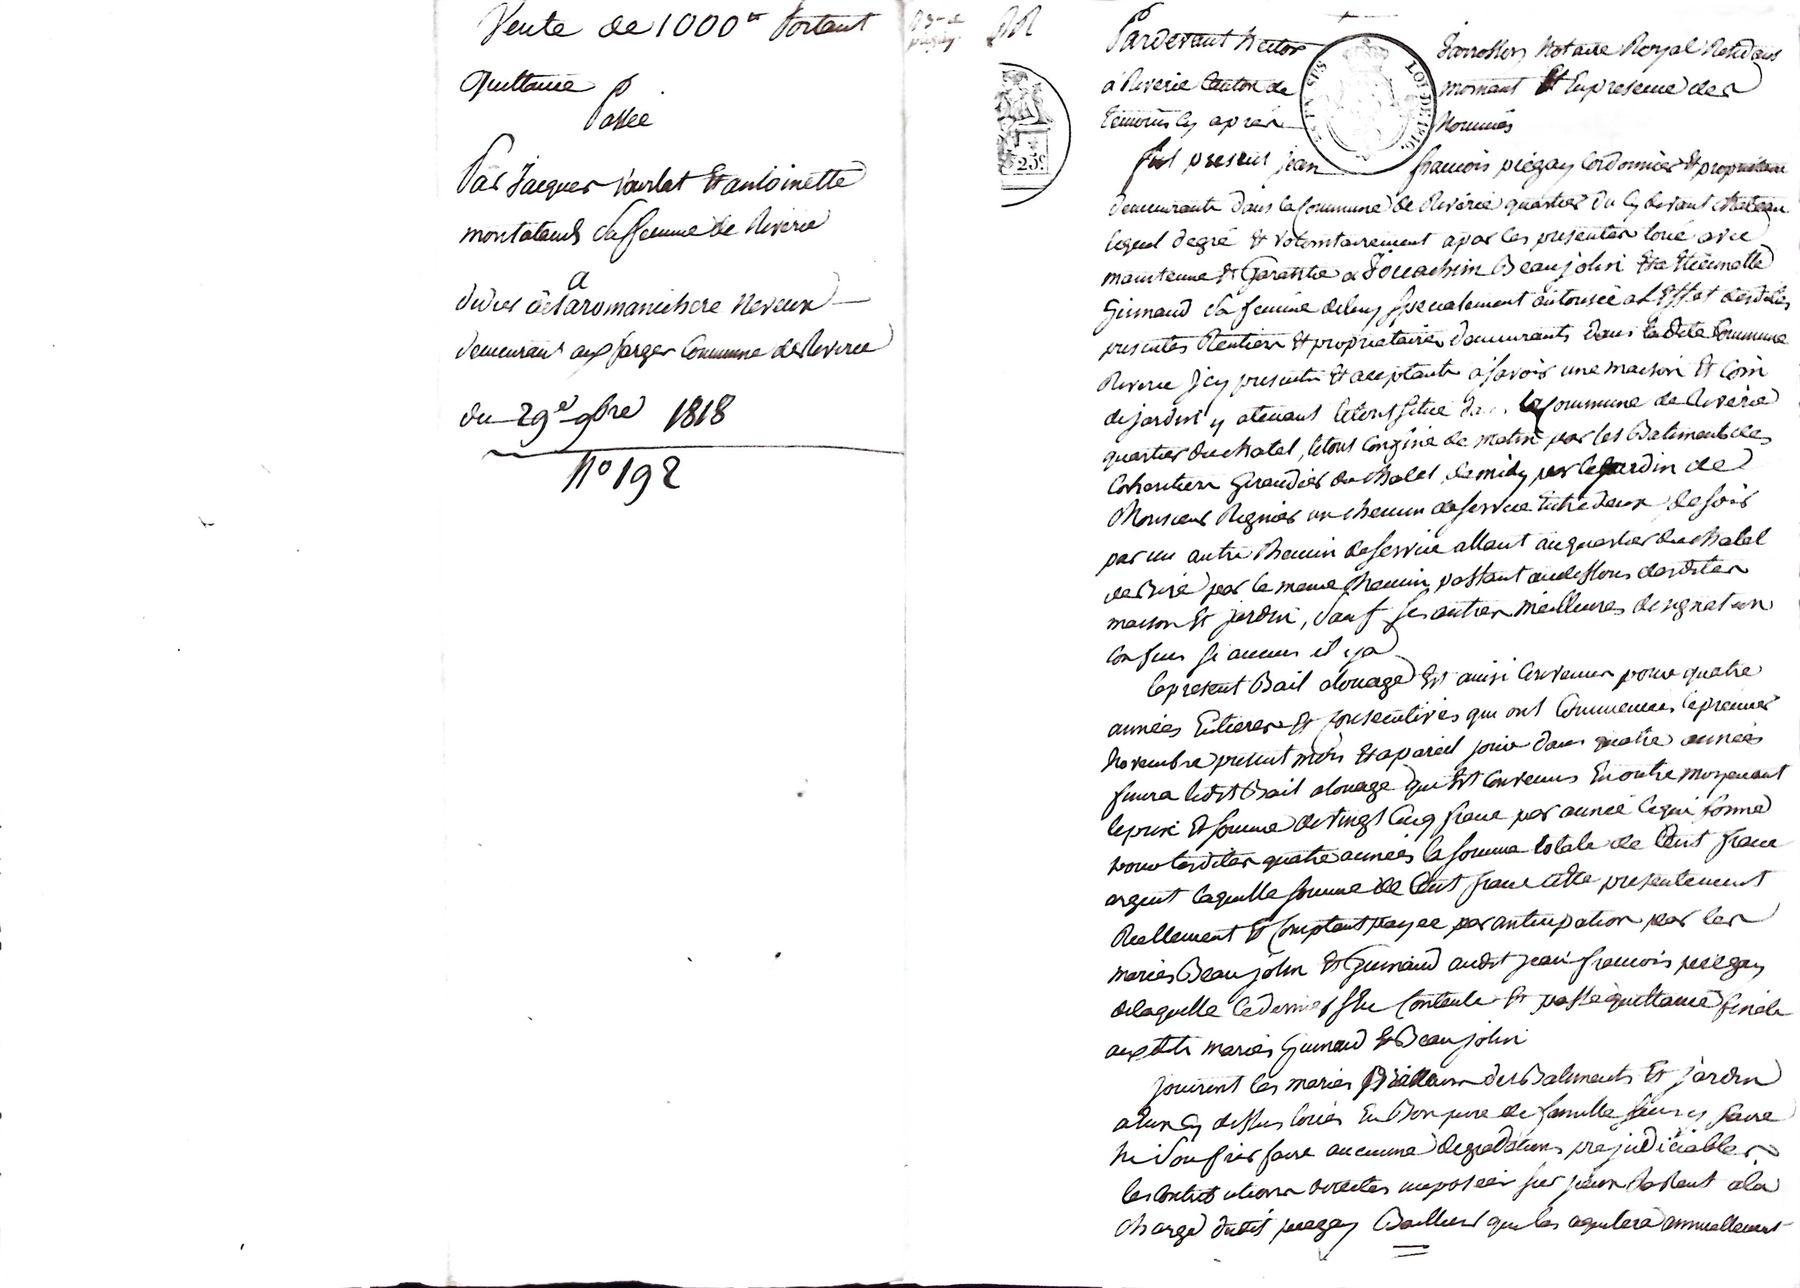 Vente de 1000 tt Portant
Quittance
Passée
Par Jacques Vourlat Et antoinette
sa femme de Riverie
a
neveux
demeurant aux farges Commune de Riverie
du 29e 9bre 1818
No 192
Pardevant Nector
Notaire Royal Residans
à Riverie Canton de
mornant Et En presence des
temoins Cy après
Nommés
25c.
LOI DE 1816
fut present jean
francois piégay Cordonnier Et propriétaire
demeurants dans la Commune de Riverie quartier du Cy devant chateau
lequel de gré Et volontairement a par les presentes loué avec
maintenue Et Garantie a Beaujolin Et a Etiennette
Guinand sa femme de luy specialement autorisée a l'Effet desdites
presentes Rentiers Et propriétaires demeurants dans ladite Commune
Riverie Icy presents Et acceptants a savoir une maison Et Coin
de jardin y atenant le tout situé la Commune de Riverie
quartier du chatel, le tout Confine de matin par les Batiments des
Giraudier du chatel, de midy par le jardin de
Monsieur Regnier un chemin de service Entre deux, de soir
par un autre chemin de service allant au quartier du chatel
de Bize par le meme chemin passant au dessous desdites
maison Et jardin, sauf ses autres meilleures designation
Confins si aucuns il y a
le present Bail a louage Est ainsi Convenu pour quatre
années Entieres Et Consecutives qui ont Commencées le premier
Novembre present mois Et a pareil jour dans quatre années
finira ledit Bail a louage qui Est Convenus En outre moyenant
le prix Et somme de vingt Cinq franc par année Ce qui forme
pour lesdites quatre années la somme totale de Cent franc
argent laquelle somme de Cent franc a Eté presentement
Reellement Et Comptant payee par anticipation par les
mariés Beaujolin Et Guinand audit jean francois piegay
de laquelle Ce dernier s'En Contente Et passe quittance finale
auxdits mariés Guinand Et Beaujolin
jouiront les mariés des Batiments Et jardin
a Eux Cy dessus loués En Bon pere de famille sans y faire
Ni souffrir faire aucunne degradations prejudiciables
les Contributions directes imposées sur iceux Restent a la
charge dudit piegay Bailleur qui les aquitera annuellement